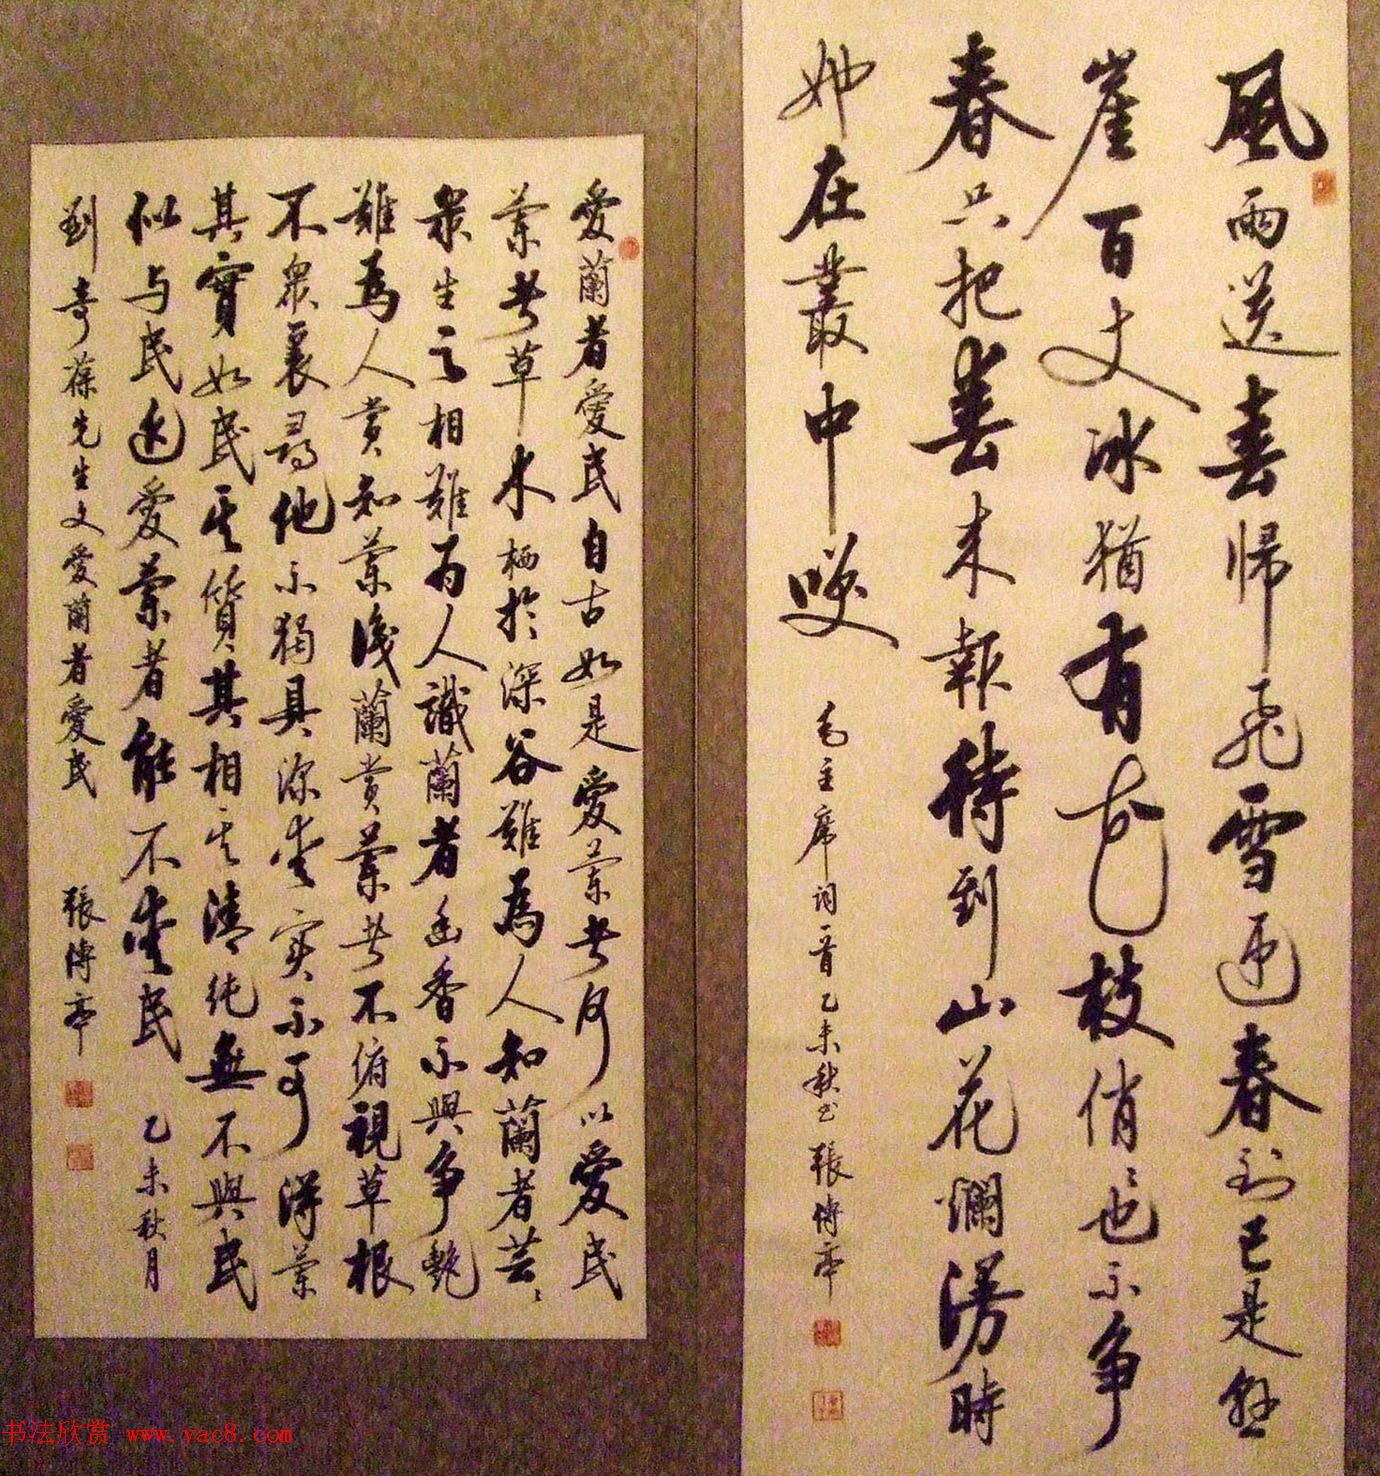 風雨送春歸飛雪迎春到已是懸
崖百丈冰猶有花枝俏俏也不爭
春只把春來報待到山花爛漫時
她在叢中笑
毛主席詞一首乙未秋書張博亭
愛蘭者愛民自古如是愛蘭者何以愛民
蘭者草木栖於深谷難為人知蘭者芸芸
眾生之相難為人識蘭者幽香不與爭艷
難為人賞知蘭識蘭賞蘭者不俯視草根
不眾裏尋他不獨具深愛實不可得蘭
其實如民其質其相其清純無不與民
似与民近愛蘭者能不愛民
乙未秋月
劉奇葆先生文愛蘭者愛民
張博亭
书法欣赏 www.yac8.com